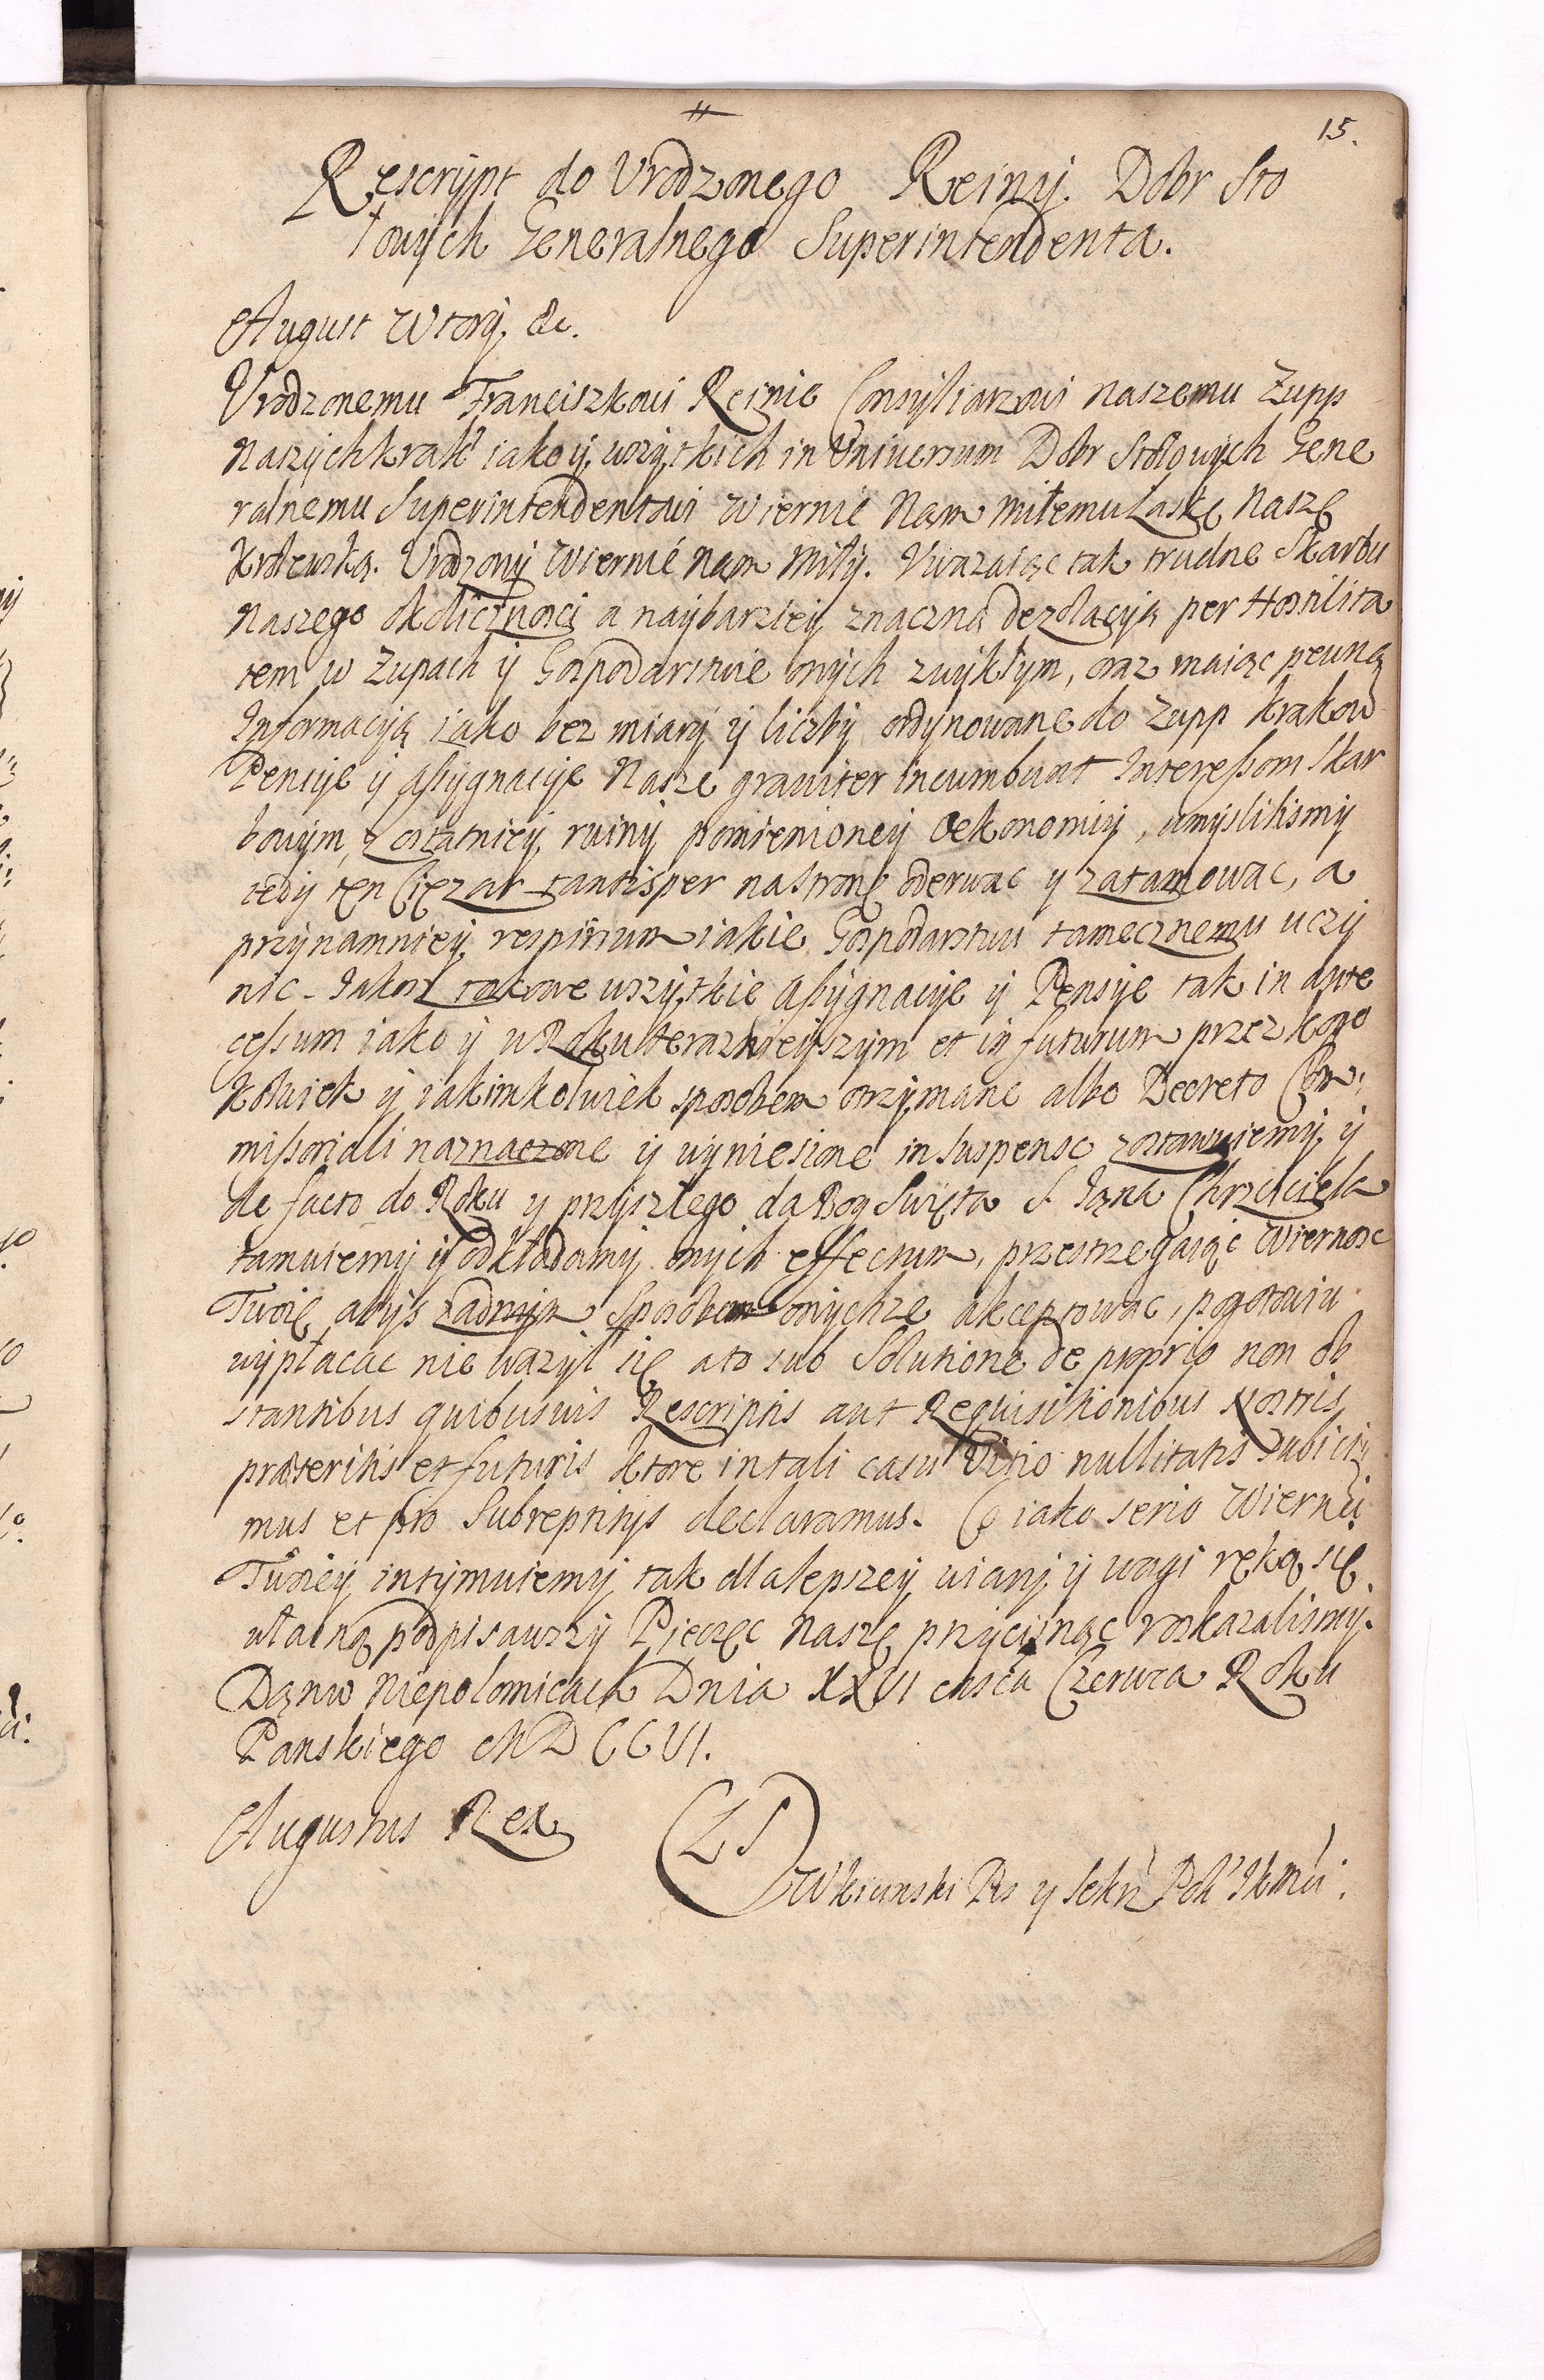 15.
Rescrypt do Vrodzonego Reiny Dobr Sto
łowych Generalnego Superintendenta.
August Wtory &c.
Vrodzonemu Franciszkowi Reinie Consyliarzowi Naszemu Zupp
Naszych krak iako y wszytkich in Universum Dobr Stołowych Gene
ralnemu Superintendentowi Wiernie Nam miłemu Łaskę Naszę
Krolewską. Vrodzony Wiernie Nam Miły. Vwazaiąc tak trudne Skarbu
Naszego okolicznosci a naybarziey znaczną dezolacyią per Hostilita
tem w Zupach y Gospodarstwie onych zwykłym, oraz maiąc pewną
Informacyią iako bez miary y liczby ordynowane do Zupp Krakow
Pencye y assygnacye Nasze graviter incumbunt Interessom Skar
bowym, z ostatniey ruiny pomienioney Oekonomiy, umyslilismy
tedy ten Cięzar tantisper na stronę oderwac y zatamowac, a
przynamniey respirium iakie Gospodarstwu tamecznemu uczy
nic. Jakoz takowe wszytkie Assygnacye y Pensye tak in ante
cessum iako y w Roku teraznieyszym et in futurum przez kogo
kolwiek y iakimkolwiek sposobem otrzymane albo Decreto Com-
missoriali naznaczone y wyniesione in suspenso zostawuiemy y
de facto do Roku y przyszłego da Bog Swięta S. Jana Chrzciciela
tamuiemy y odkładamy onych effectum, przestrzegaiąc Wiernosc
Twoię abys zadnym Sposobem onychze akceptowac, pogotowiu
wypłacac nie wazył się a to sub Solutione de proprio non ob
stantibus quibusuis Rescriptis aut Requisitionibus Nostris
præteritis et futuris ktore in tali casu Vitio nullitatis subiici
mus et pro Subreptitijs declaramus. Co iako serio Wiernci
Twoiey intymuiemy tak dla lepszey wiary y wagi ręką się
własną podpisawszy Pieczęc Naszę przycisnąc roskazalismy.
Dan w Niepolomicach Dnia XXVI Msca Czerwca Roku
Panskiego MDCCVI.
Augustus Rex
LS
Pis y Sekr Pok JKMci.